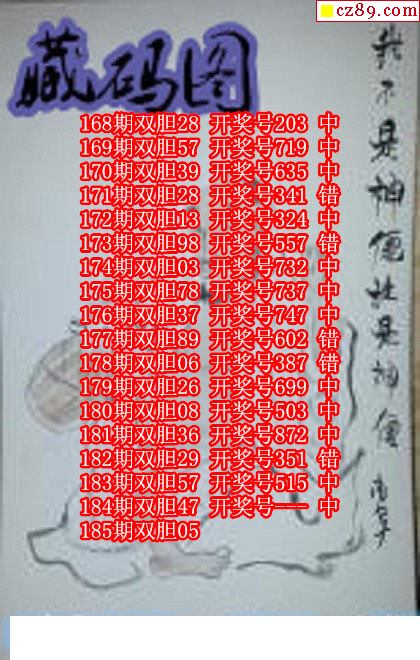 cz89.com
藏码图
168期双胆28 开奖号203 中
169期双胆57 开奖号719 中
170期双胆39 开奖号635 中
171期双胆28 开奖号341 错
172期双胆13 开奖号324 中
173期双胆98 开奖号557 错
174期双胆03 开奖号732 中
175期双胆78 开奖号737 中
176期双胆37 开奖号747 中
177期双胆89 开奖号602 错
178期双胆06 开奖号387 错
179期双胆26 开奖号699 中
180期双胆08 开奖号503 中
181期双胆36 开奖号872 中
182期双胆29 开奖号351 错
183期双胆57 开奖号515 中
184期双胆47 开奖号--- 中
185期双胆05
我不是神便是神